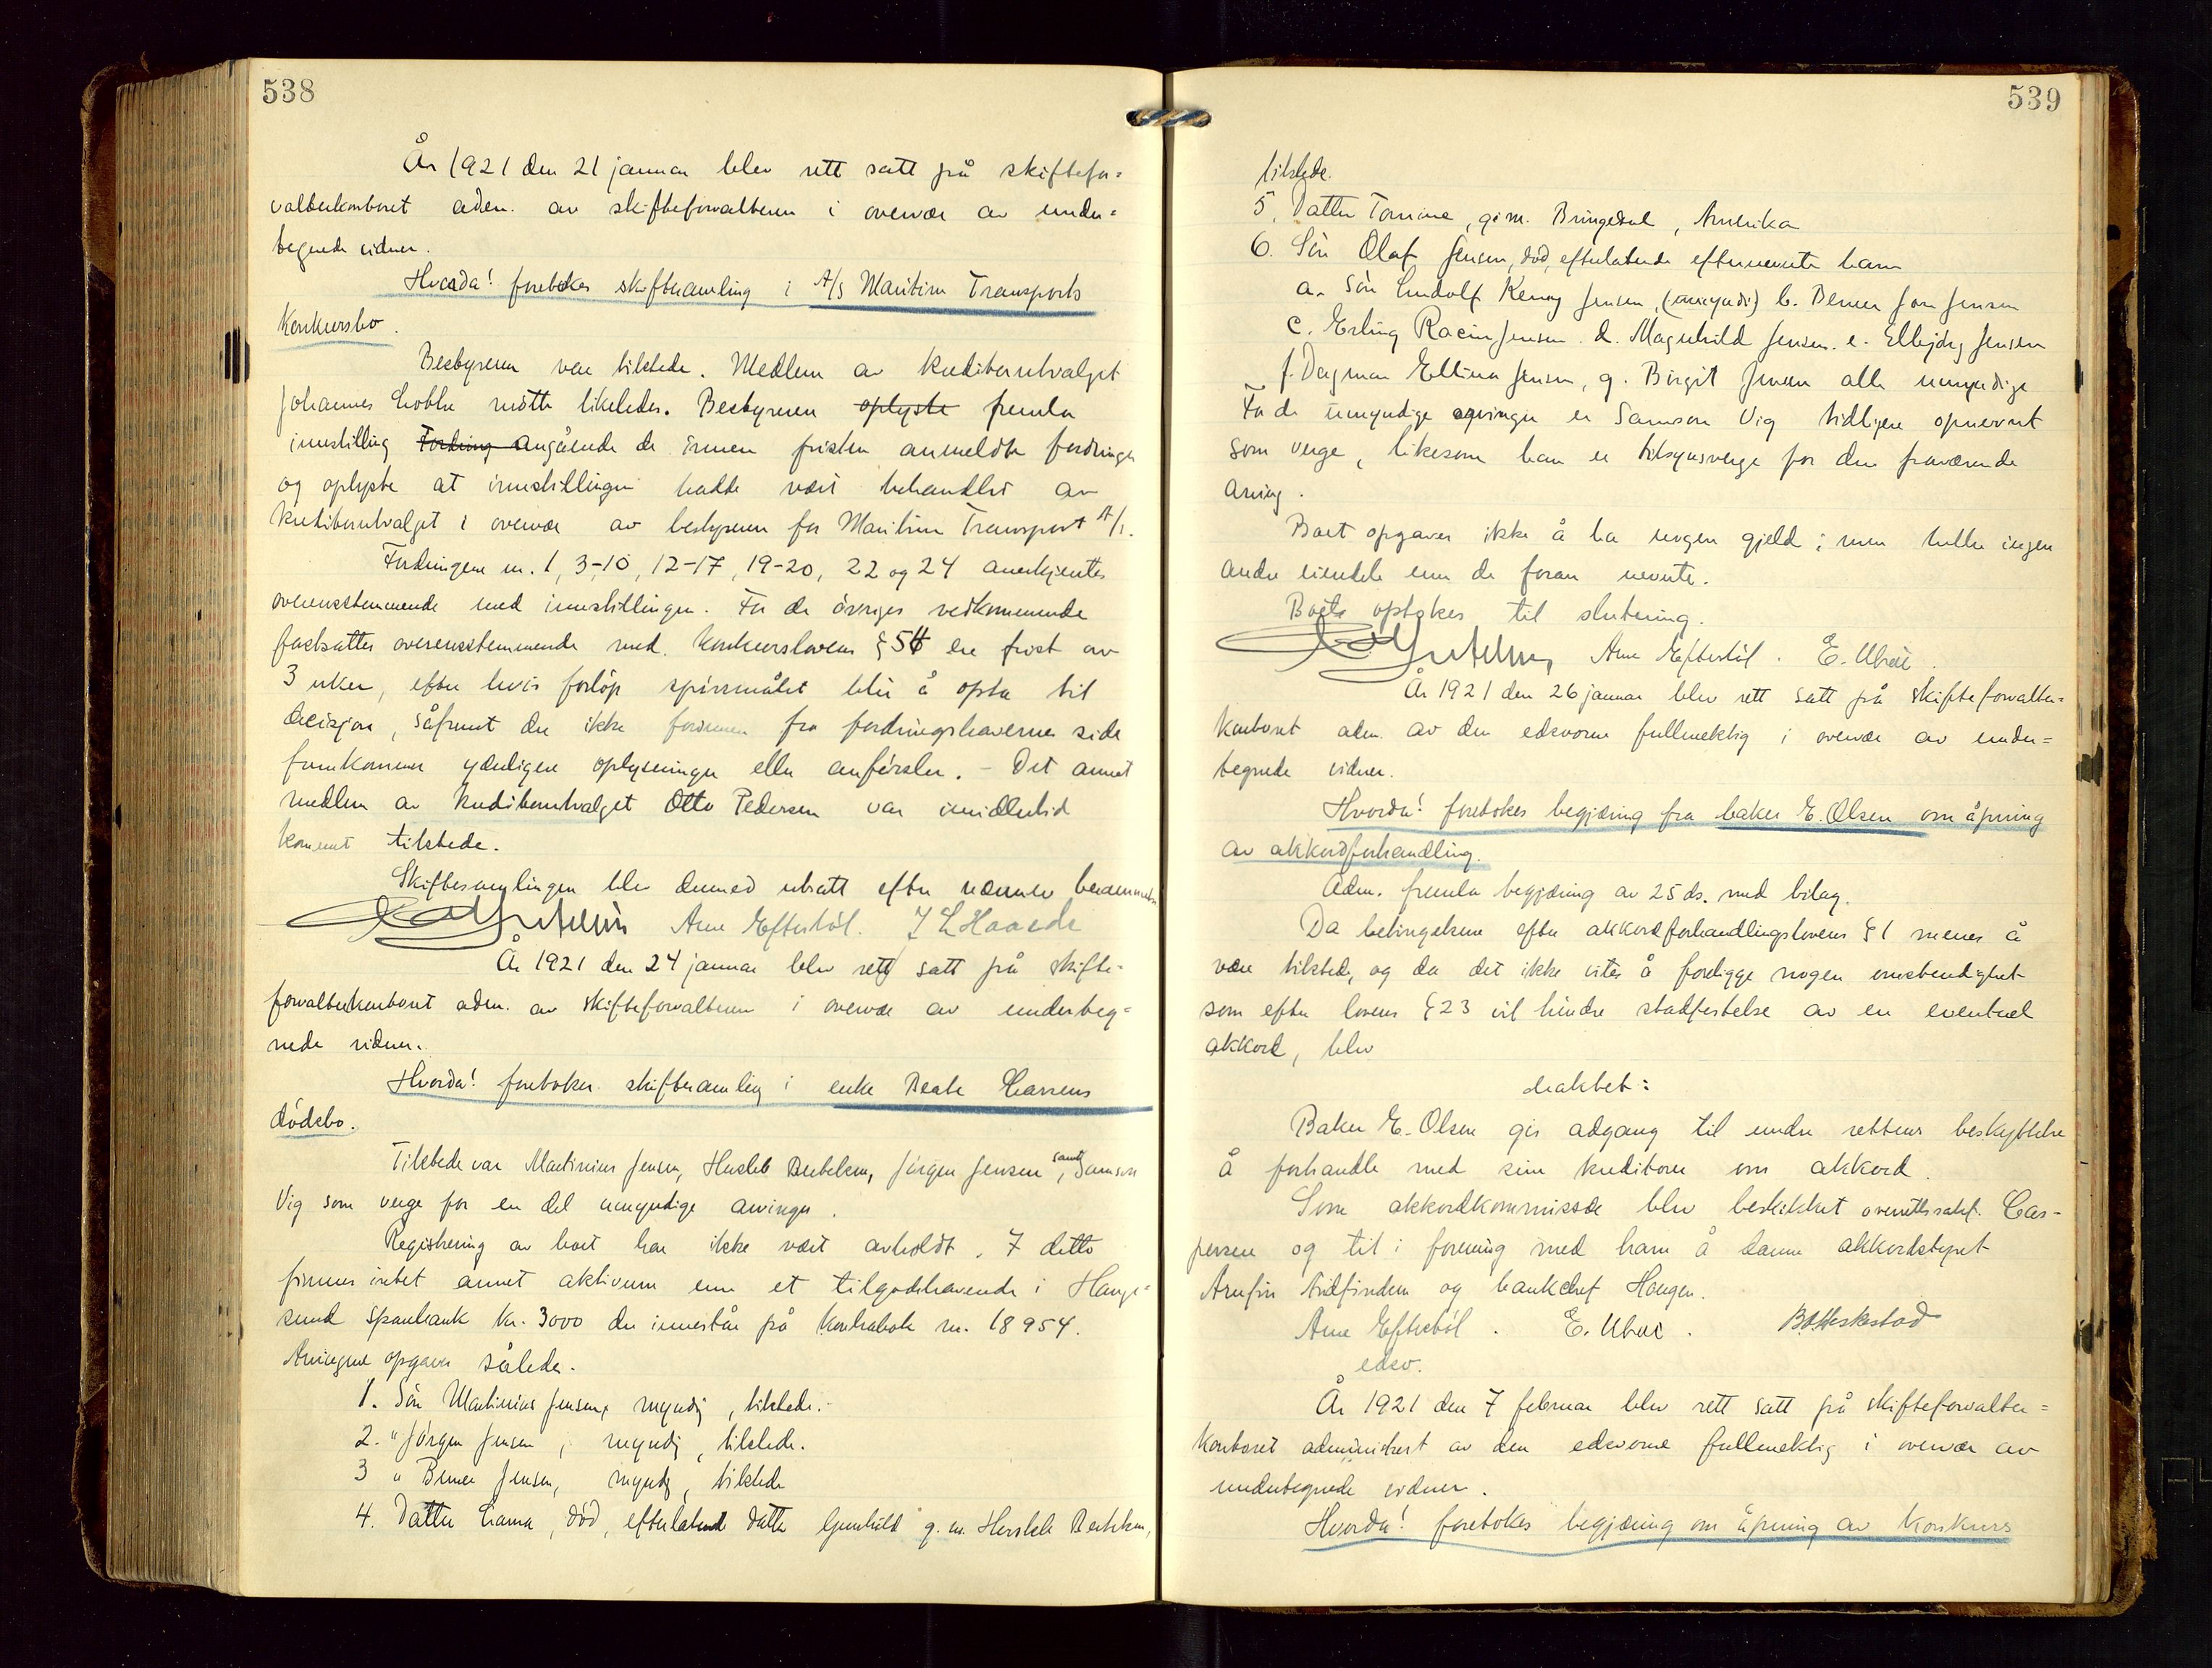 538
År 1921 den 21 januar blev rett satt på skiftefor=
valterkontoret adm. av skifteforvalteren i overvær av under=
tegnede vidner.
Hvorda! foretokes skiftesamling i A/S Maritim Transports
Konkursbo.
Bestyreren var tilstede. Medlem av kreditorutvalget
Johannes møtte likeledes. Bestyreren oplyste fremla
innstilling Fordring angående de innen fristen anmeldte fordringer
og oplyste at innstillingen hadde vært behandlet av
kreditorutvalget i overvær av bestyreren for Maritim Transport A/S.
Fordringene nr. 1, 3-10, 12-17, 19-20, 22 og 24 anerkjentes
overensstemmende med innstillingen. For de øvriges vedkommende
fastsattes overensstemmende med konkurslovens § 54 en frist av
3 uker, efter hvis forløp spørsmålet blir å opta til
decisjon, såfremt der ikke forinnen fra fordringshavernes side
fremkommer yderligere oplysninger eller anførsler. - Det annet
medlem av kreditorutvalget Otto Pedersen var imidlertid
kommet tilstede.
Skiftesamlingen blev dermed utsatt efter nærmere berammelse
Arne Eftestöl. J L Haaede
År 1921 den 24 januar blev rett satt på skifte=
forvalterkontoret adm. av skifteforvalteren i overvær av underteg=
nede vidner.
Hvorda! foretokes skiftesamling i enke Beate Larsens
dødsbo.
Tilstede var Martinius Jensen, Hersleb Bertelsen, Jørgen Jensen, samt Samson
Vig som verge for en del umyndige arvinger.
Registrering av boet har ikke vært avholdt. I dette
finnes intet annet aktivum enn et tilgodehavende i Hauge=
sund Sparebank kr. 3000 der innestår på kontrabok nr. 18954.
Arvingene opgaves således.
1. Søn Martinius Jensen, myndig, tilstede.
2. " Jørgen Jensen, myndig, tilstede.
3 " Berner Jensen, myndig, tilstede
4. Datter Laura, død, efterlatende datter Gunhild g. m. Herslek Bertelsen,
539
tilstede.
5, Datter Tomine, g. m. Bringedal, Amerika
6. Søn Olaf Jensen, død, efterlatende efternevnte barn
a. søn Ludolf Kenny Jensen, (umyndi) b. Berner Jon Jensen
c. Erling Racin Jensen. d. Magnhild Jensen. e. Ellbjørg Jensen
f. Dagmar Ellina Jensen, g. Birgit Jensen alle umyndige
For de umyndige arvinger er Samson Vig tidligere opnevnt
som verge, likesom han er tilsynsverge for den fraværende
arving.
Boet opgaves ikke å ha nogen gjeld; men heller ingen
andre eiendele enn de foran nevnte.
Boets optokes til slutning.
Arne Eftestöl. E. Ubøe.
År 1921 den 26 januar blev rett satt på skifteforvalter=
kontoret adm. av den edsvorne fullmektig i overvær av under=
tegnede vidner.
Hvorda! foretokes begjæring fra baker E. Olsen om åpning
av akkordforhandling.
Adm. fremla begjæring av 25 ds. med bilag.
Da betingelsene efter akkordforhandlingslovens § 1 menes å
være tilstede, og da det ikke vites å foreligge nogen omstendighet
som efter lovens § 23 vil hindre stadfestelse av en eventuel
akkord, blev
deaktet:
Baker E. Olsen gis adgang til under rettens beskyttelse
å forhandle med sine kreditorer om akkord.
Som akkordkommissær blev beskikket overrettssakf. Cas-
persen og til i forening med ham å danne akkordstyret
Arnfin Midfinden og bankchef Haugen.
Arne Eftestöl. E. Ubøe. B. Heskestad
edsv.
År 1921 den 7 februar blev rett satt på skifteforvalter=
kontoret administrert av den edsvorne fullmektig i overvær av
undertegnede vidner.
Hvorda! foretokes begjæring om åpning av konkurs